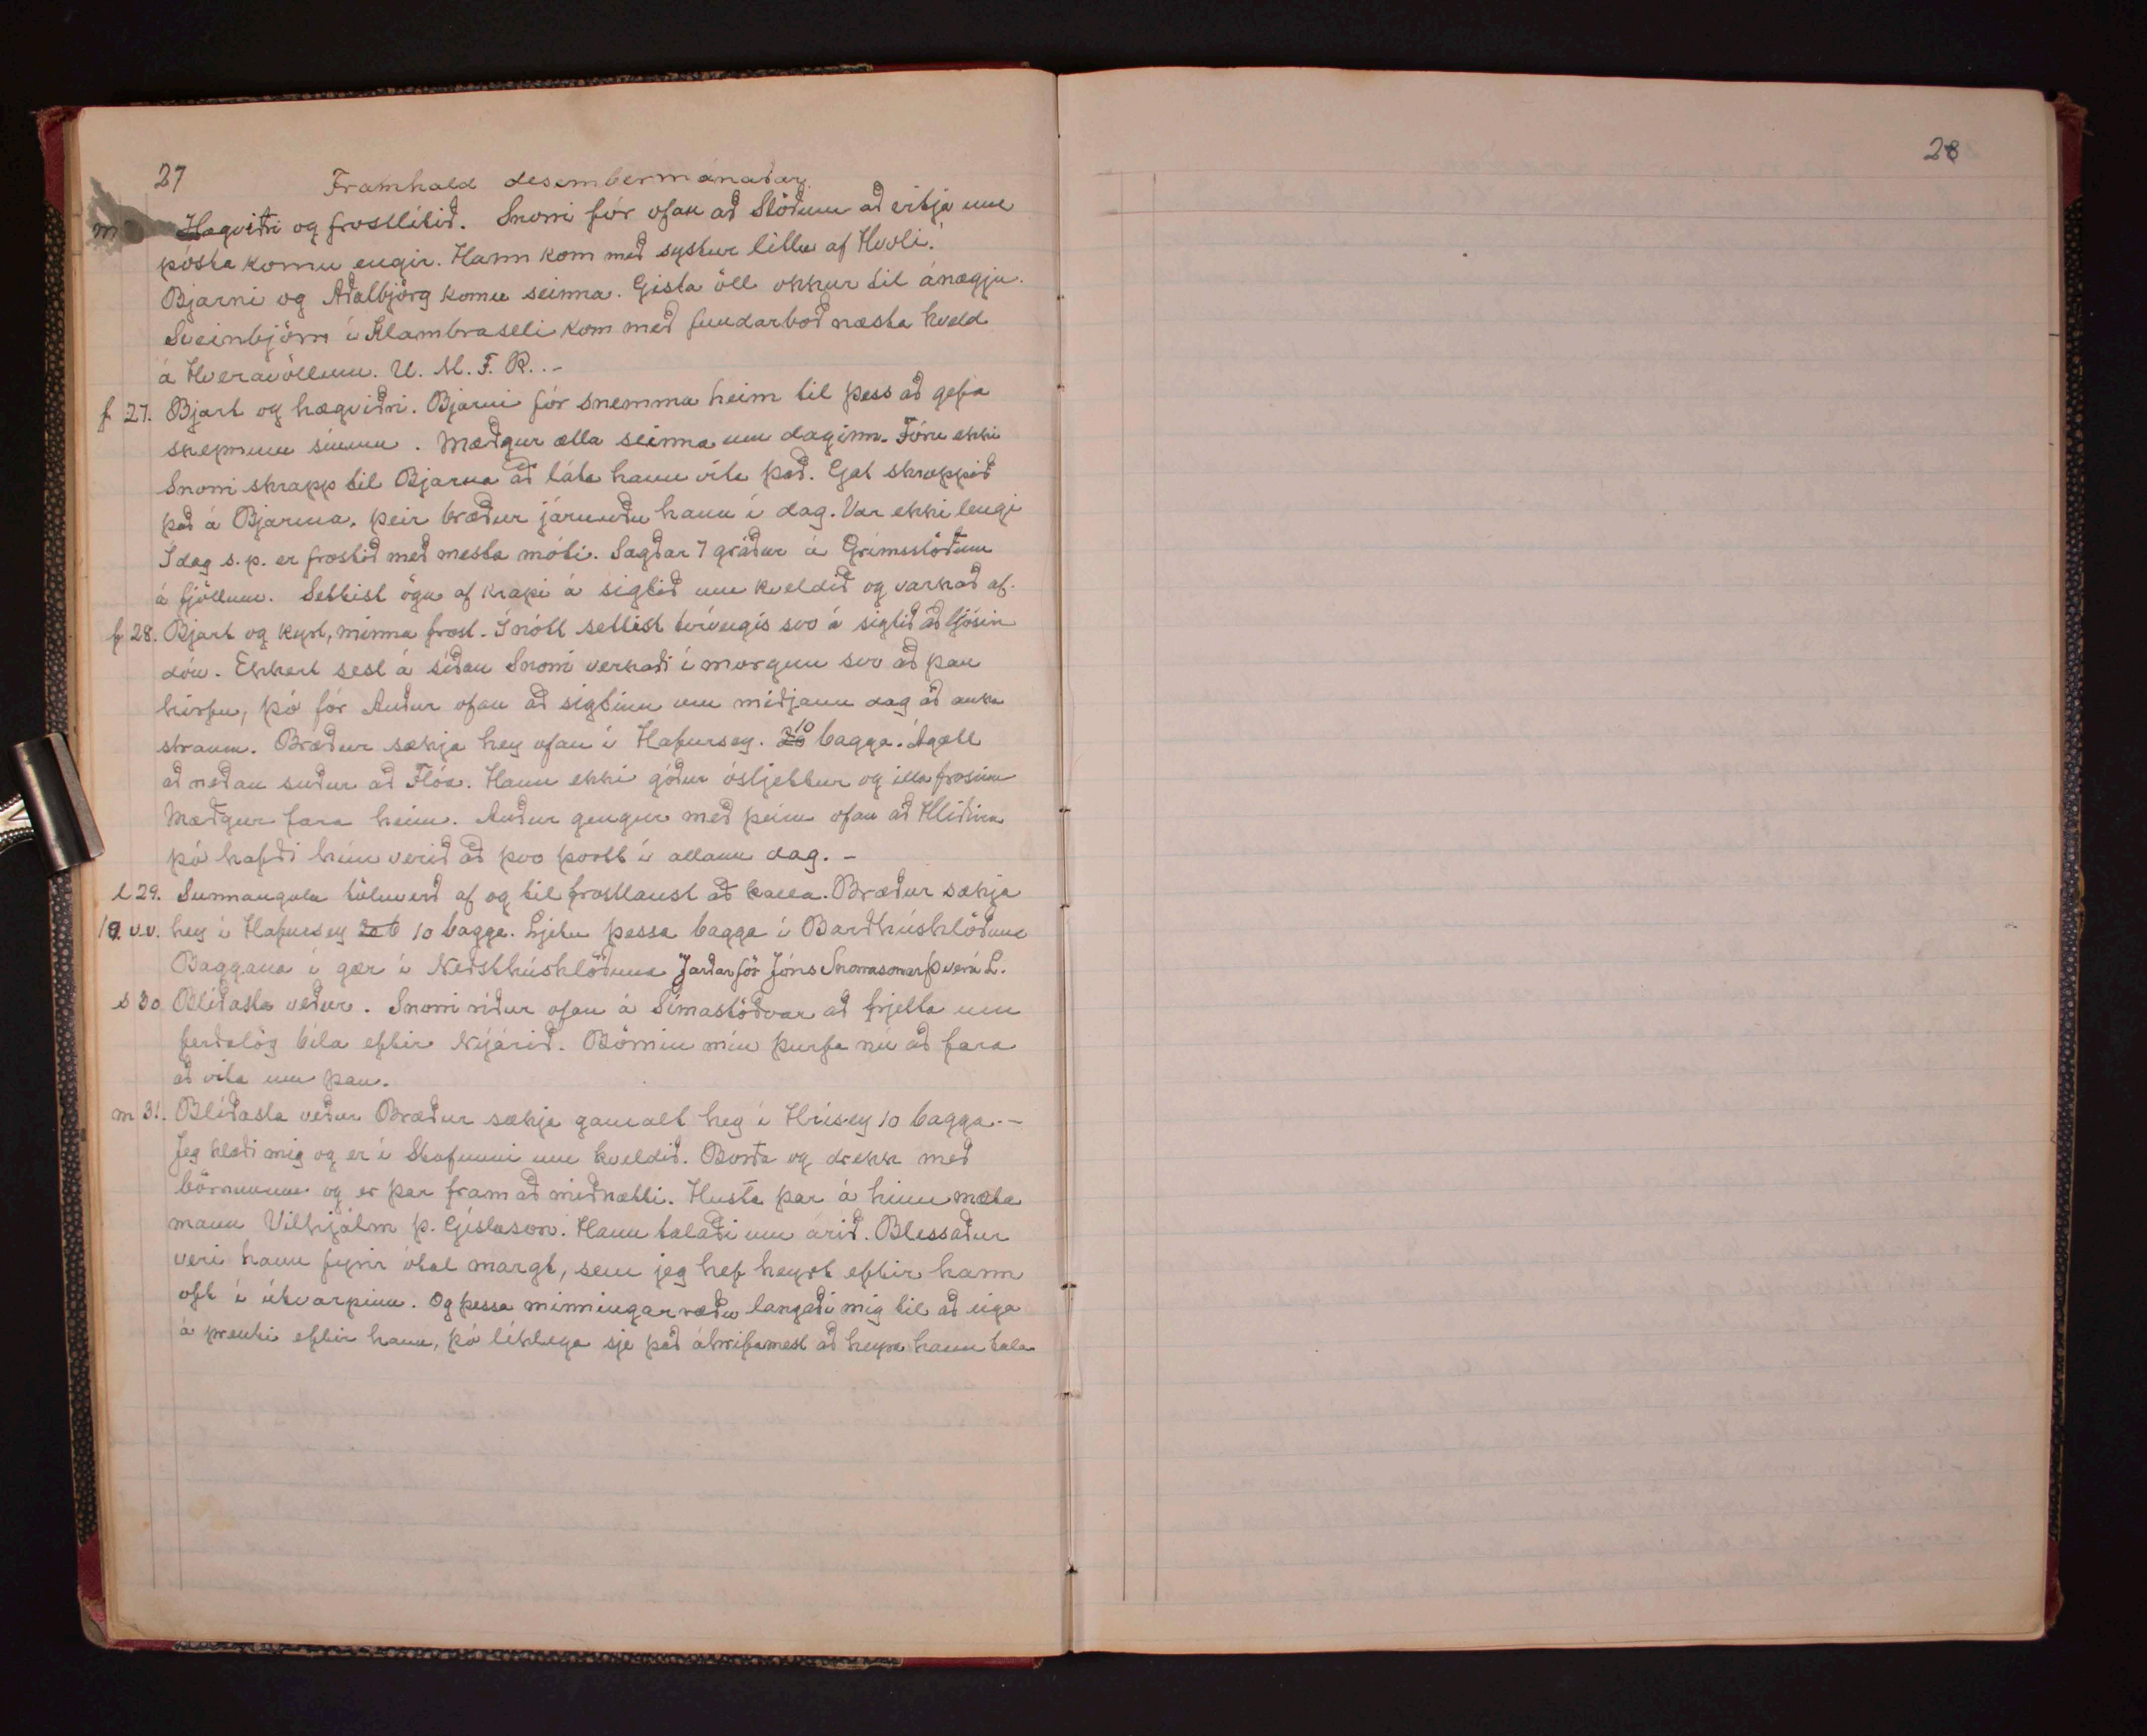 27
Framhald desembermánaðar.
m Hægviðri og frostlítið. Snorri fór ofan að Stöðum að vitja um
pósta komu engir. Hann kom með systur litlu af Hvoli.
Bjarni og Aðalbjörg komu seinna. Gista öll okkur til ánægju.
Sveinbjörn í Klambraseli kom með fundarboð næsta kveld
á Hveravöllum. U. M. F. R. . -
f 27. Bjart og hægviðri. Bjarni fór snemma heim til þess að gefa
skepnum sínum. Mæðgur ætla seinna um daginn. Fóru ekki
Snorri skrapp til Bjarna að láta hann vita það. Gat skroppið
það á Bjarma. Þeir bræður járnuðu hann í dag. Var ekki lengi
Í dag s.p. er frostið með mesta móti. Sagðar 7 gráður á Grímsstöðum
á fjöllum. Settist ögn af krapi á sigtið um kveldið og varkað af.
f 28. Bjart og kyrt, minna frost. Í nótt settist tvívegis svo á sigtið að ljósin
dóu. Ekkert sest á síðan Snorri verkaði í morgun svo að þau
hirfu, þó fór Auður ofan að sigtinu um miðjann dag að auka
straum. Bræður sækja hey ofan í Hafursey. 20 10 bagga. Ágætt
að neðan suður að Flóa. Hann ekki góður ósljettur og illa frosinn
Mæðgur fara heim. Auður gengur með þeim ofan að Hlíðina
þó hafði hún verið að þvo þvott í allann dag. -
l 29. Sunnangola tölúverð af og til frostlaust að kalla. Bræður sækja
19. v.v. hey í Hafursey 10 bagga. Ljetu þessa bagga í Barðhúshlöðuna
Baggana í gær í Neðsthúshlöðuna Jarðarför Jóns Snorrasonar Þverá L.
s 30 Blíðasta veður. Snorri ríður ofan á Símastöðvar að frjetta um
ferðalög bíla eftir Nýárið. Börnin mín þurfa nú að fara
að vita um þau.
m 31. Blíðasta veður Bræður sækja gamalt hey í Hrísey 10 bagga. -
Jeg klæði mig og er í Stofunni um kveldið. Borða og drekk með
börnunum og er þar fram að miðnætti. Husta þar á hinn mæta
mann Vilhjálm þ. Gíslason. Hann talaði um árið. Blessaður
veri hann fyrir ótal margt, sem jeg hef heyrt eftir hann
oft í útvarpinu. Og þessa minningarræðu langaði mig til að eiga
á prenti eftir hann, þó líklega sje það áhrifamest að heyra hann tala
28